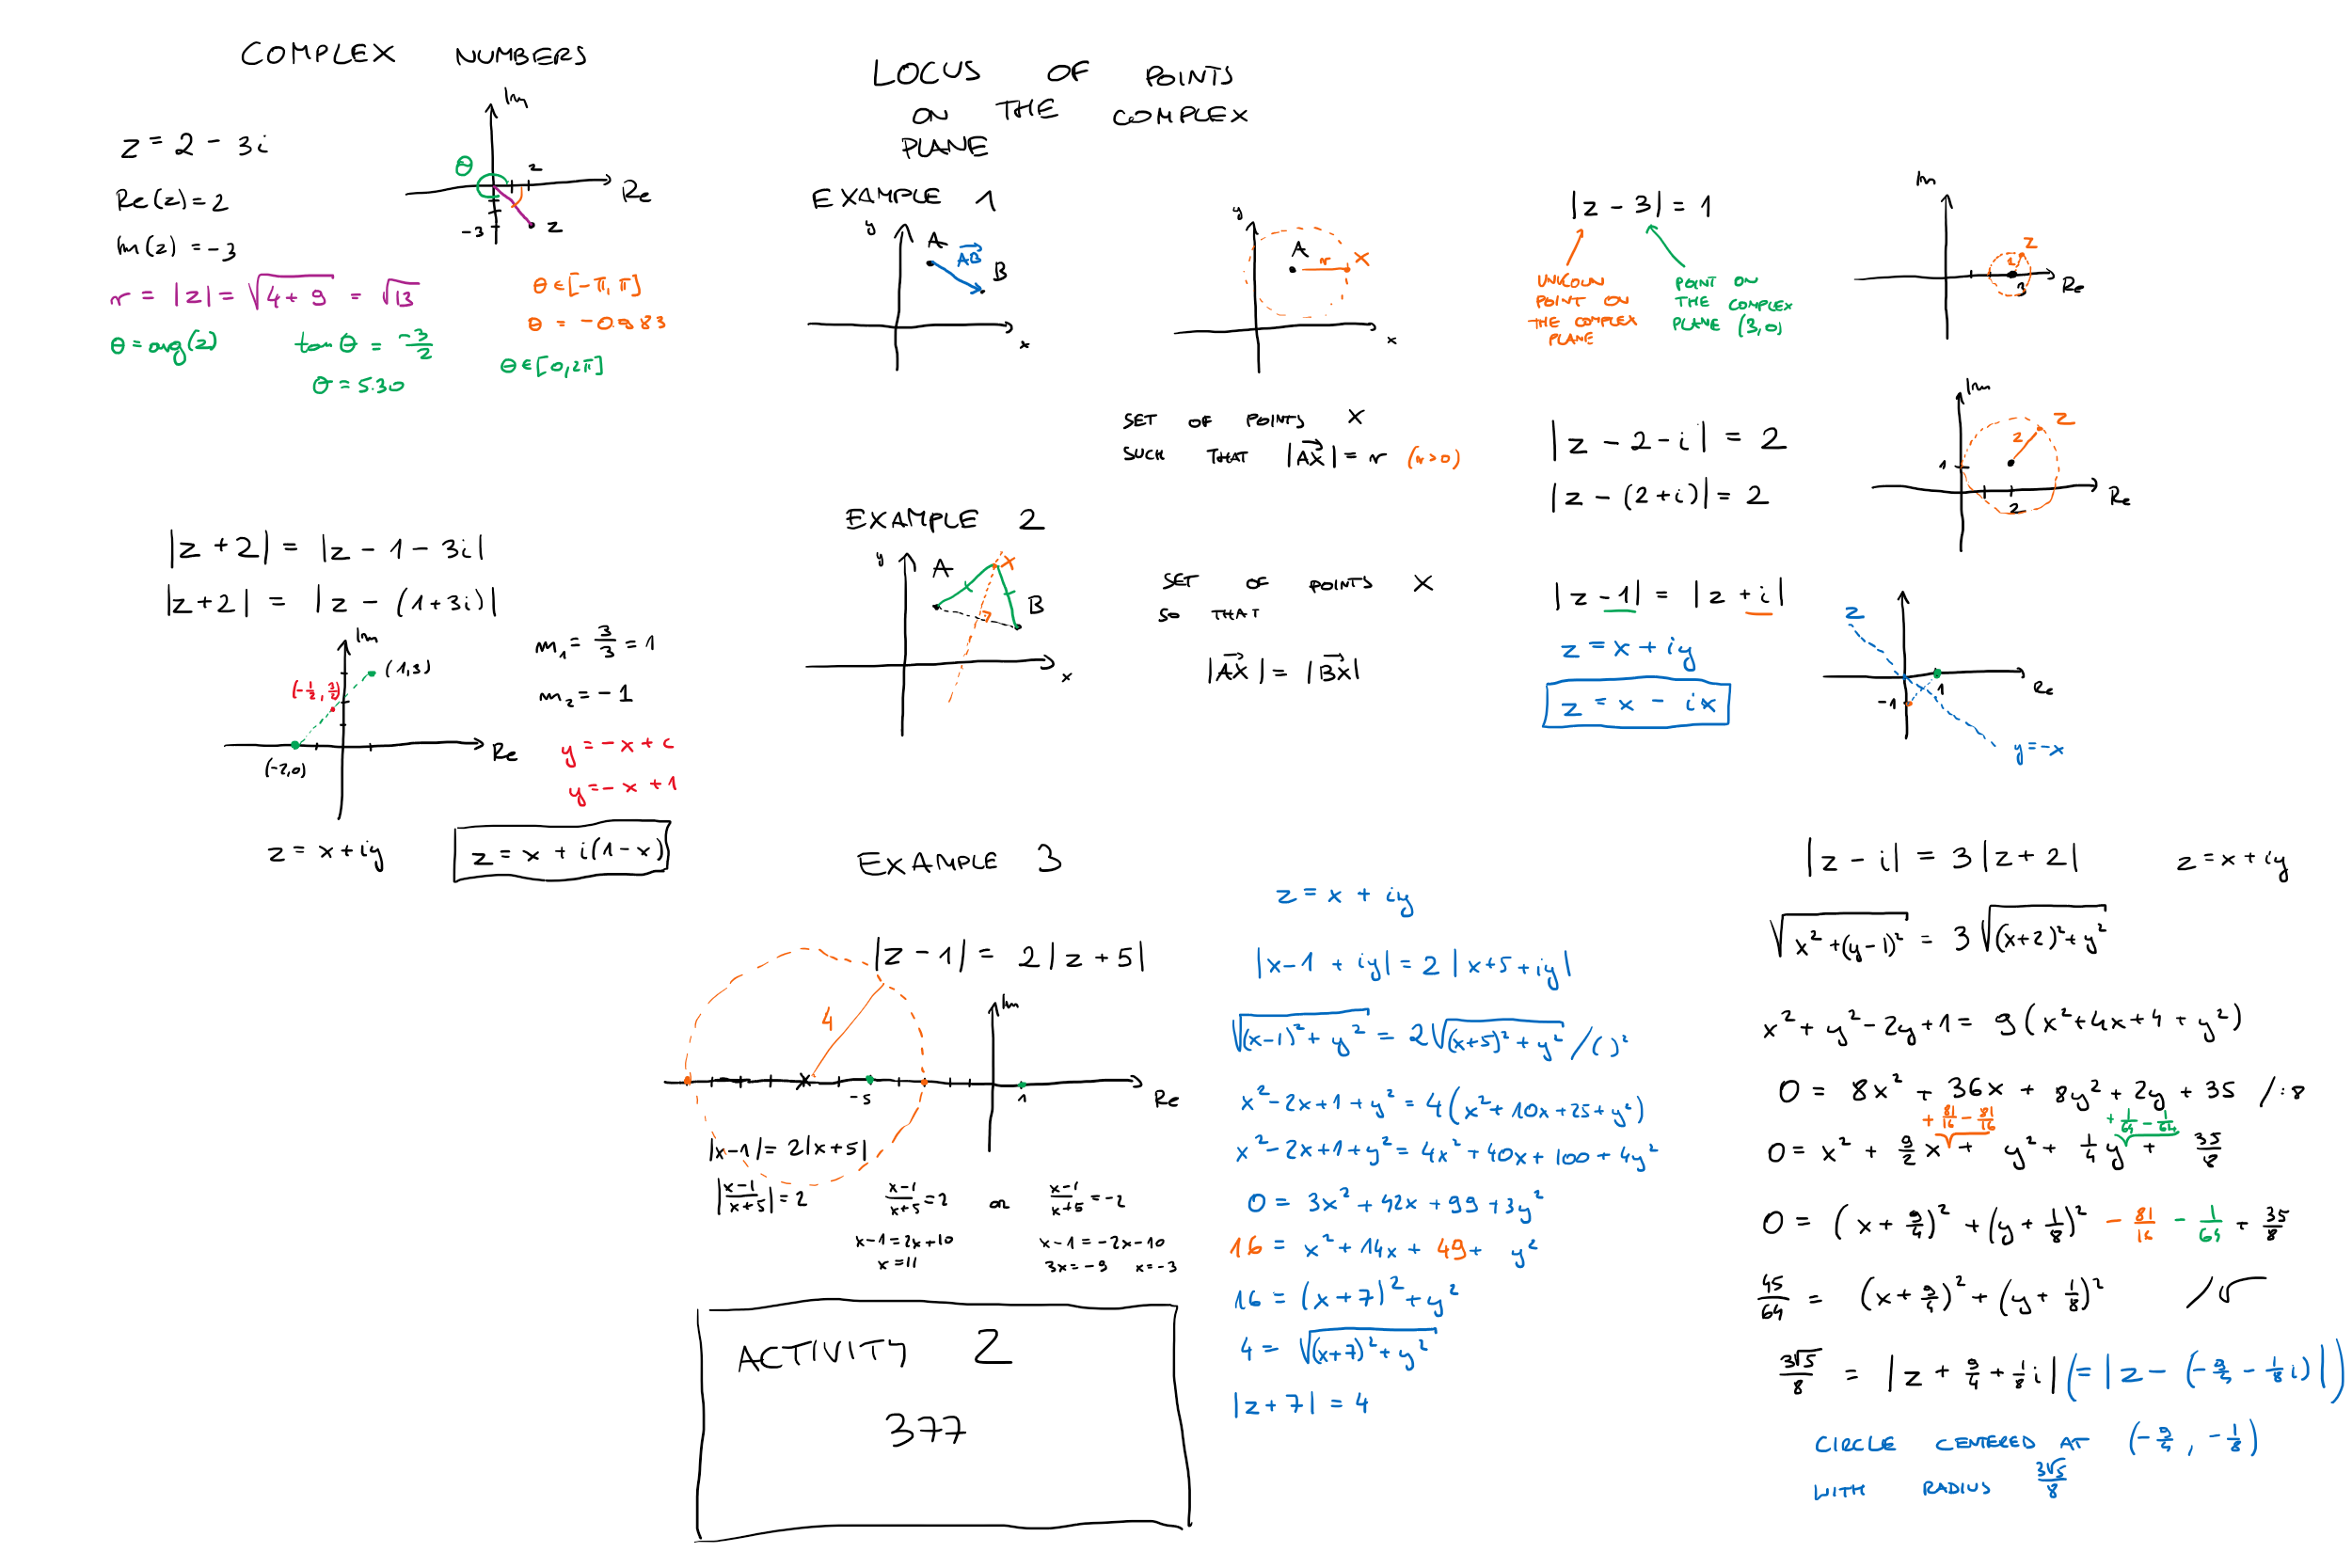 COMPLEX NUMBERS
z = 2 - 3i
Re(z) = 2
Im(z) = -3
r = |z| = √(4+9) = √13
θ = arg(z)
tan θ = -3/2
θ = 5.30
θ ∈ [-π, π]
θ = -0.983
θ ∈ [0, 2π]
Im
θ
2
Re
-3
z
|z + 2| = |z - 1 - 3i|
|z+2| = |z - (1+3i)|
Im
(1,3)
(-1/2, 3/2)
Re
(-2,0)
m₁ = 3/3 = 1
m₂ = -1
y = -x + c
y = -x + 1
z = x + iy
z = x + i(1-x)
LOCUS OF POINTS
ON THE COMPLEX
PLANE
EXAMPLE 1
y
A
AB
B
x
y
A
r
X
x
SET OF POINTS X
SUCH THAT |AX| = r (r>0)
|z - 3| = 1
UNKOUN
POINT ON
THE COMPLEX
PLANE
POINT ON
THE COMPLEX
PLANE (3,0)
Im
z
1
3
Re
|z - 2 - i| = 2
|z - (2+i)| = 2
Im
z
2
1
2
Re
EXAMPLE 2
y
A
X
B
x
SET OF POINTS X
SO THAT
|AX| = |BX|
|z - 1| = |z + i|
z = x + iy
z = x - ix
z
1
Re
-1
y = -x
EXAMPLE 3
|z - 1| = 2|z + 5|
4
Im
-5
1
Re
|x-1| = 2|x+5|
|x-1/x+5| = 2
x-1/x+5 = 2 or x-1/x+5 = -2
x-1 = 2x+10
x = 11
x-1 = -2x-10
3x = -9 x = -3
ACTIVITY 2
377
z = x + iy
|x-1 + iy| = 2|x+5+iy|
√((x-1)² + y²) = 2√((x+5)² + y²) /( )²
x² - 2x + 1 + y² = 4(x² + 10x + 25 + y²)
x² - 2x + 1 + y² = 4x² + 40x + 100 + 4y²
0 = 3x² + 42x + 99 + 3y²
16 = x² + 14x + 49 + y²
16 = (x+7)² + y²
4 = √((x+7)² + y²)
|z + 7| = 4
|z - i| = 3|z + 2| z = x + iy
√(x² + (y-1)²) = 3√((x+2)² + y²)
x² + y² - 2y + 1 = 9(x² + 4x + 4 + y²)
0 = 8x² + 36x + 8y² + 2y + 35 /:8
+ 81/16 - 81/16 + 1/64 - 1/64
0 = x² + 9/2 x + y² + 1/4 y + 35/8
0 = (x + 9/4)² + (y + 1/8)² - 81/16 - 1/64 + 35/8
45/64 = (x + 9/4)² + (y + 1/8)² /√
3√5/8 = |z + 9/4 + 1/8 i| (= |z - (-9/4 - 1/8 i)|)
CIRCLE CENTERED AT (-9/4, -1/8)
WITH RADIUS 3√5/8